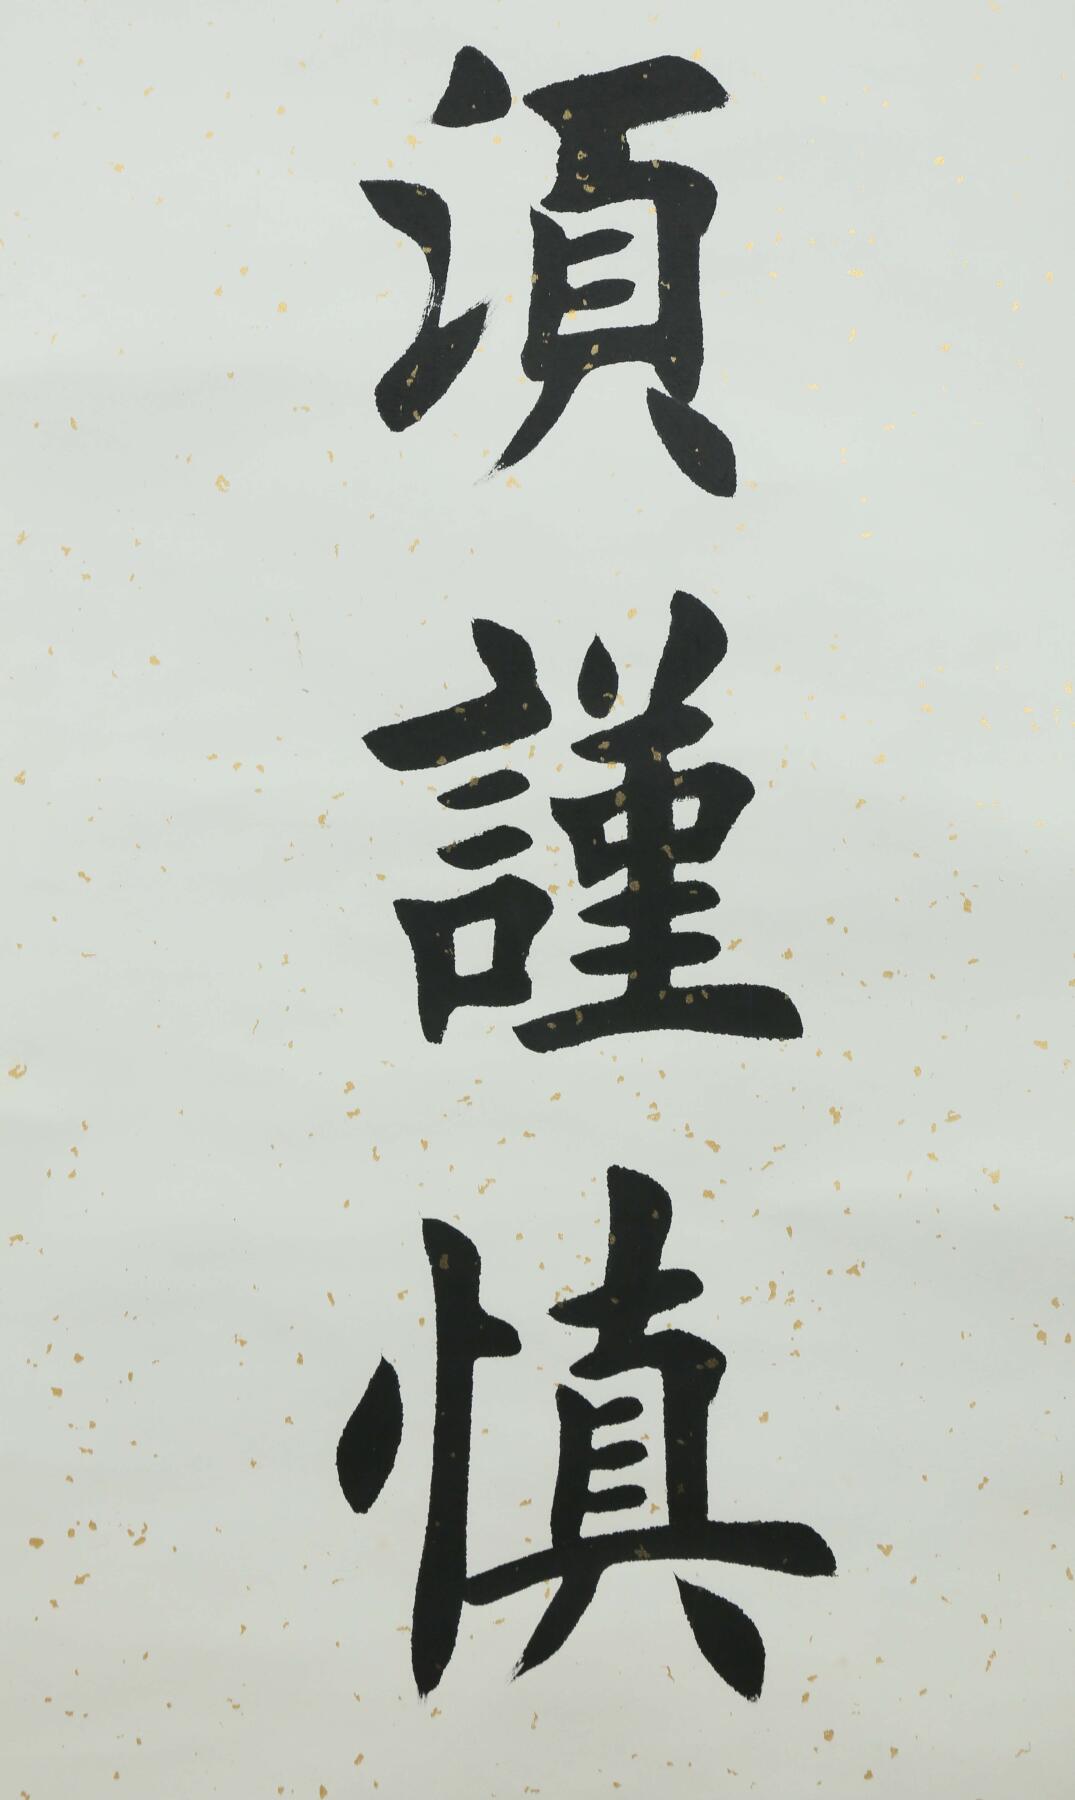 須謹慎